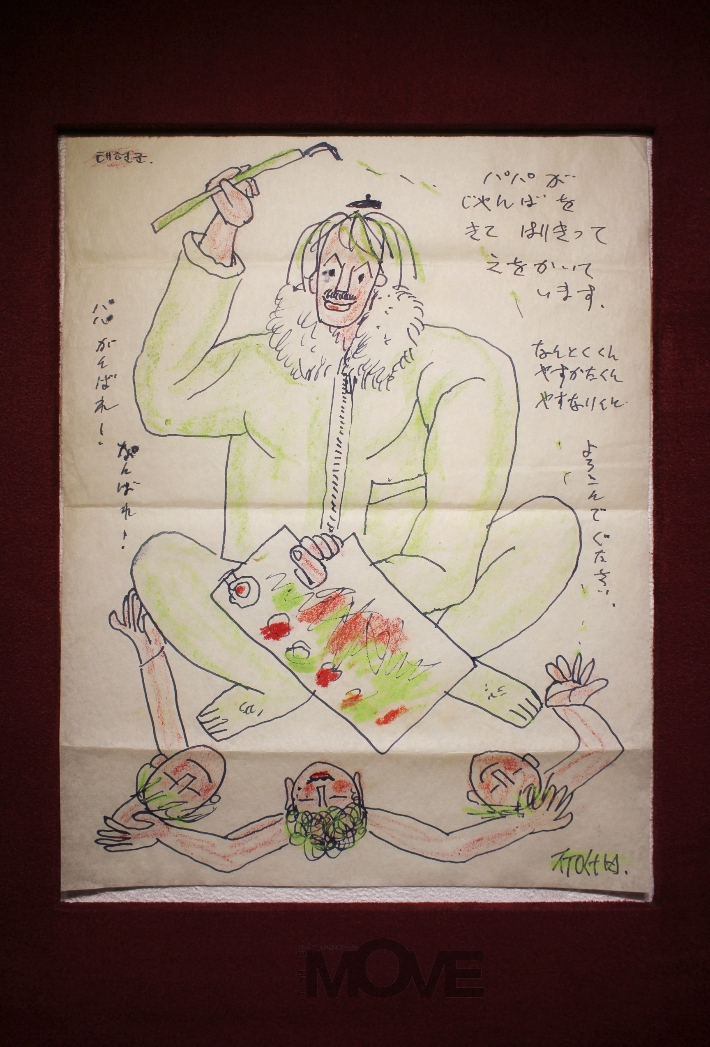 태현군.
パパが
じゃんばを
きて はりきって
えをかいて
います.
なんとくくん
やすかたくん
やすなりくん
よろこんでください.
パパがんばれ!
がんばれ!
ㅈㅜㅇㅅㅓㅂ.
MOVE